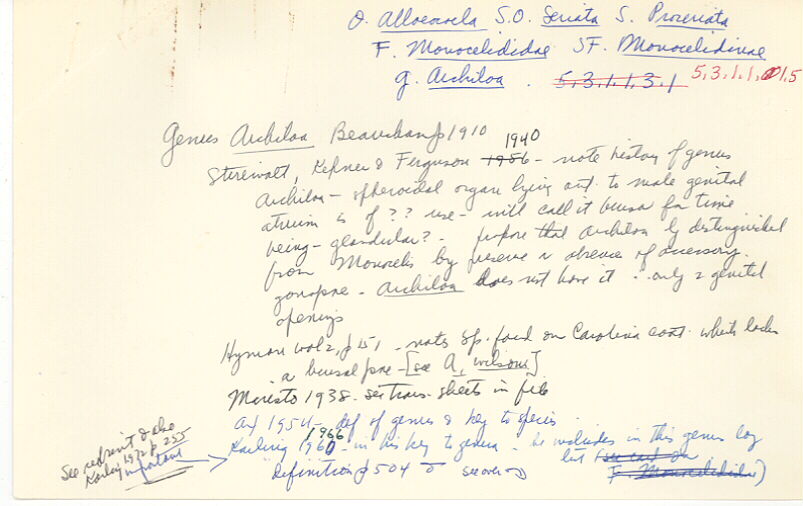 O. Alloeocoela S.O. Seriata S. Proseriata
F. Monocelididae SF. Monocelidinae
g. Archiloa . 5,3,1,1,3,1 5,3,1,1,1,5
Genus Archiloa Beauchamp 1910
1940
Stirewalt, Kepner & Ferguson 1956 - note history of genus
Archiloa - spheroidal organ lying ant. to male genital
atrium is of ?? use - will call it bursa for time
being - glandular? - propose that Archiloa be distinguished
from Monocelis by presence or absence of accessory
gonopore - Archiloa does not have it .. only 2 genital
openings
Hyman vol 2, p 151, notes sp. found on Carolina coast which lacks
a bursal pore - [see A. wilsoni]
Meristo 1938 - see trans. sheets in file
Ax 1954 - def of genus & key to species
1966
Karling 1960 - in his key to genera - he includes in this genus by
definition p 504 see over
but (see card on
F. Monocelididae)
See reprint & also
Karling 1972 p. 255
important